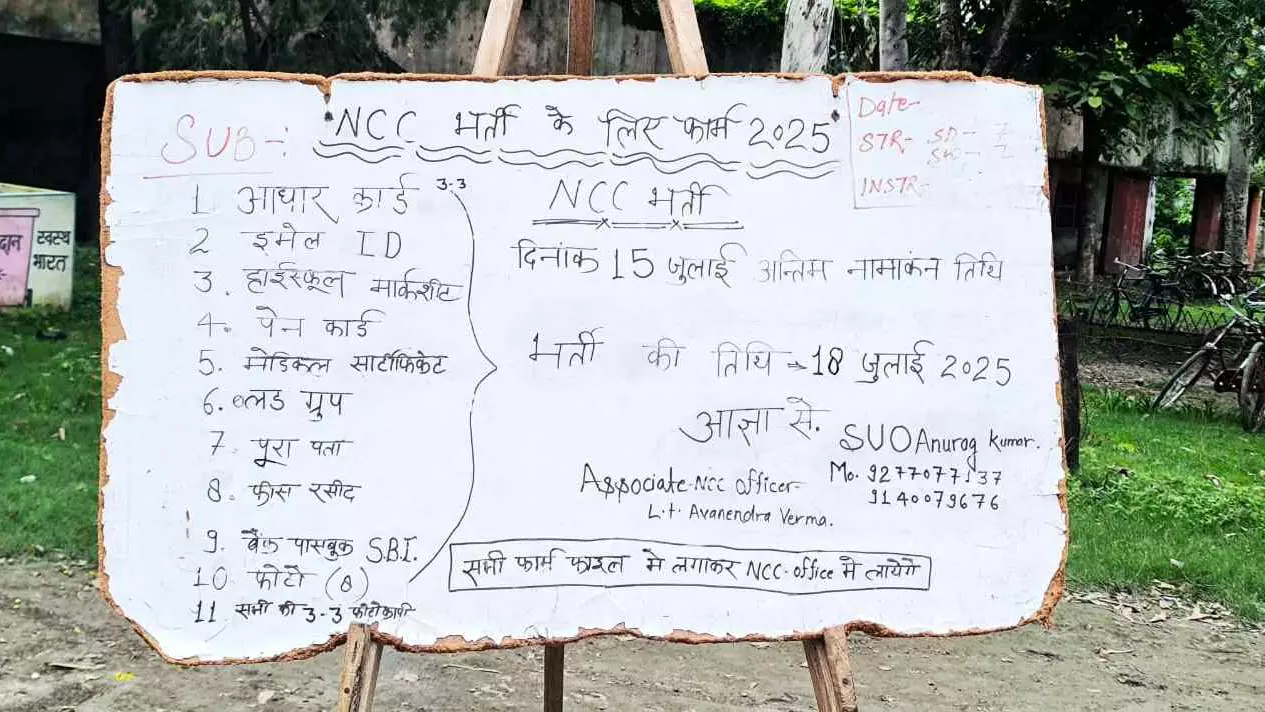 SUB-: "NCC भर्ती के लिए फार्म 2025"
Date-
STR- SD - 7
SW - 2
INSTR-
1 आधार कार्ड 3-3
2 इमेल ID
3. हाईस्कूल मार्कशीट
4. पेन कार्ड
5. मेडिकल सार्टीफिकेट
6. ब्लड ग्रुप
7 पूरा पता
8. फीस रसीद
9. बैंक पासबुक S.B.I.
10 फोटो (8)
11 सभी की 3-3 फोटोकापी
NCC भर्ती
दिनांक 15 जुलाई अन्तिम नामाकंन तिथि
भर्ती की तिथि → 18 जुलाई 2025
आज्ञा से.
SUO Anurag Kumar.
Mo. 9277077137
9140079676
Associate-Ncc officer-
L.t. Avanendra Verma.
सभी फार्म फाइल मे लगाकर NCC-office में लायेगे
दान
स्वस्थ
भारत